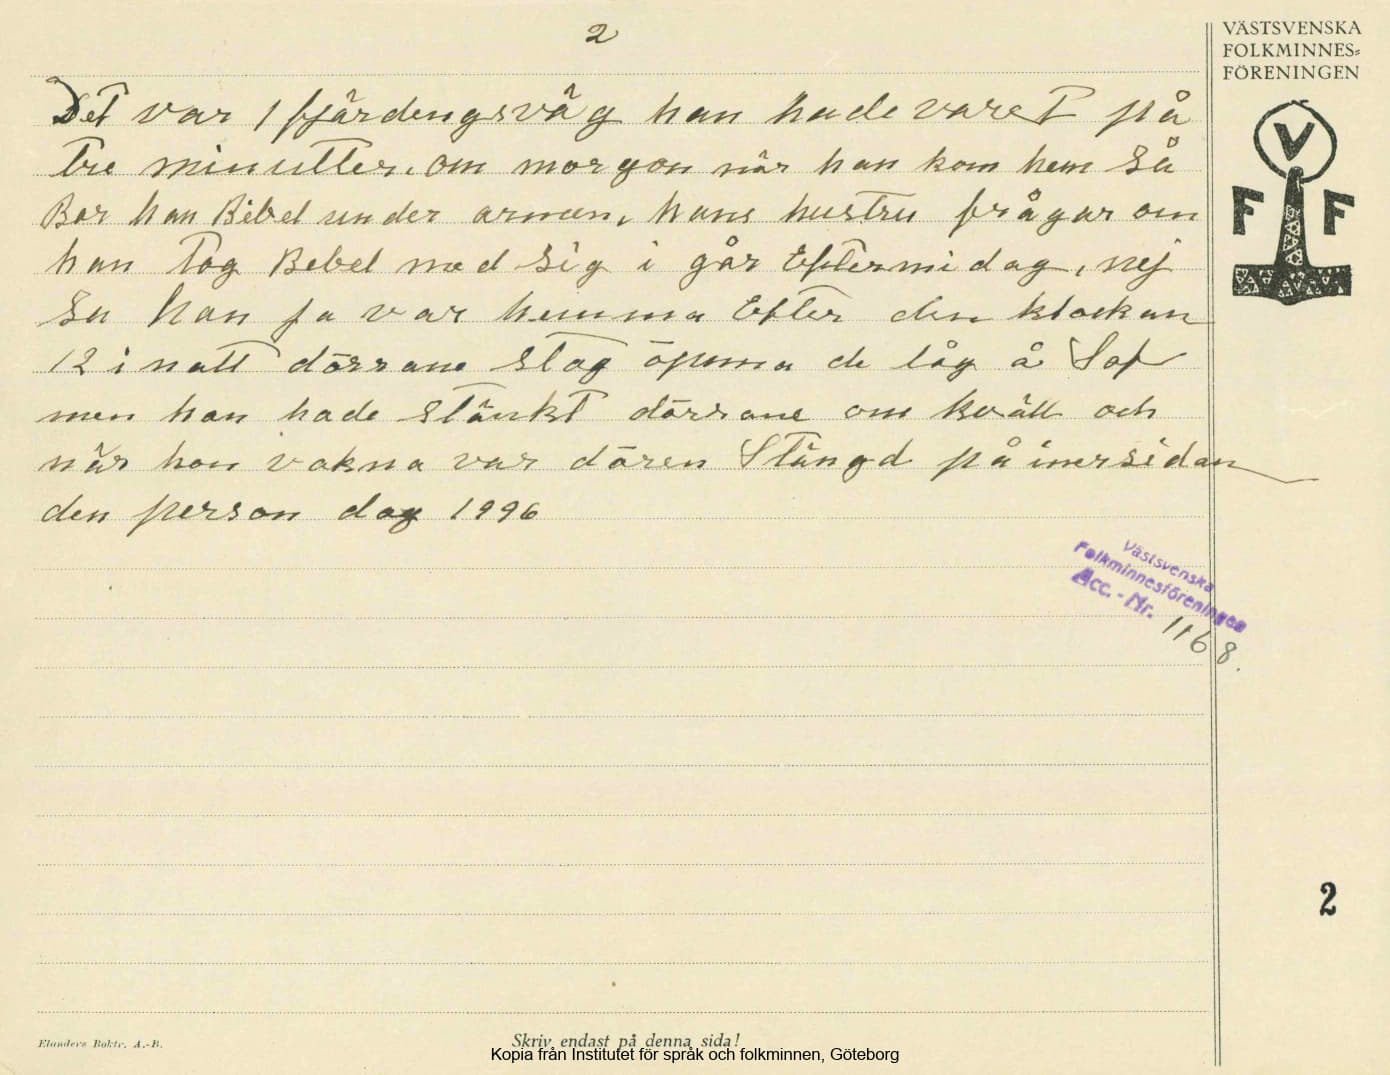 2
VÄSTSVENSKA
FOLKMINNES=
FÖRENINGEN
V
F F
Det var 1 fjärdengsväg han hade varet på
tre minutter. om morgon när han kom hem så
Bar han Bibel under armen, hans hustru frågar om
han tog Bebel med sig i går Eftermidag, nej
sa han ja var hemma Efter den klockan
12 i natt dörrane stog öpena de låg å Sof
men han hade stänkt dörrane om kväll och
när hon vakna var dören Stängd på inersidan
den person dog 1996
Västsvenska
Folkminnesföreningen
Acc. - Nr. 1168.
2
Elanders Boktr. A.-B.
Skriv endast på denna sida!
Kopia från Institutet för språk och folkminnen, Göteborg